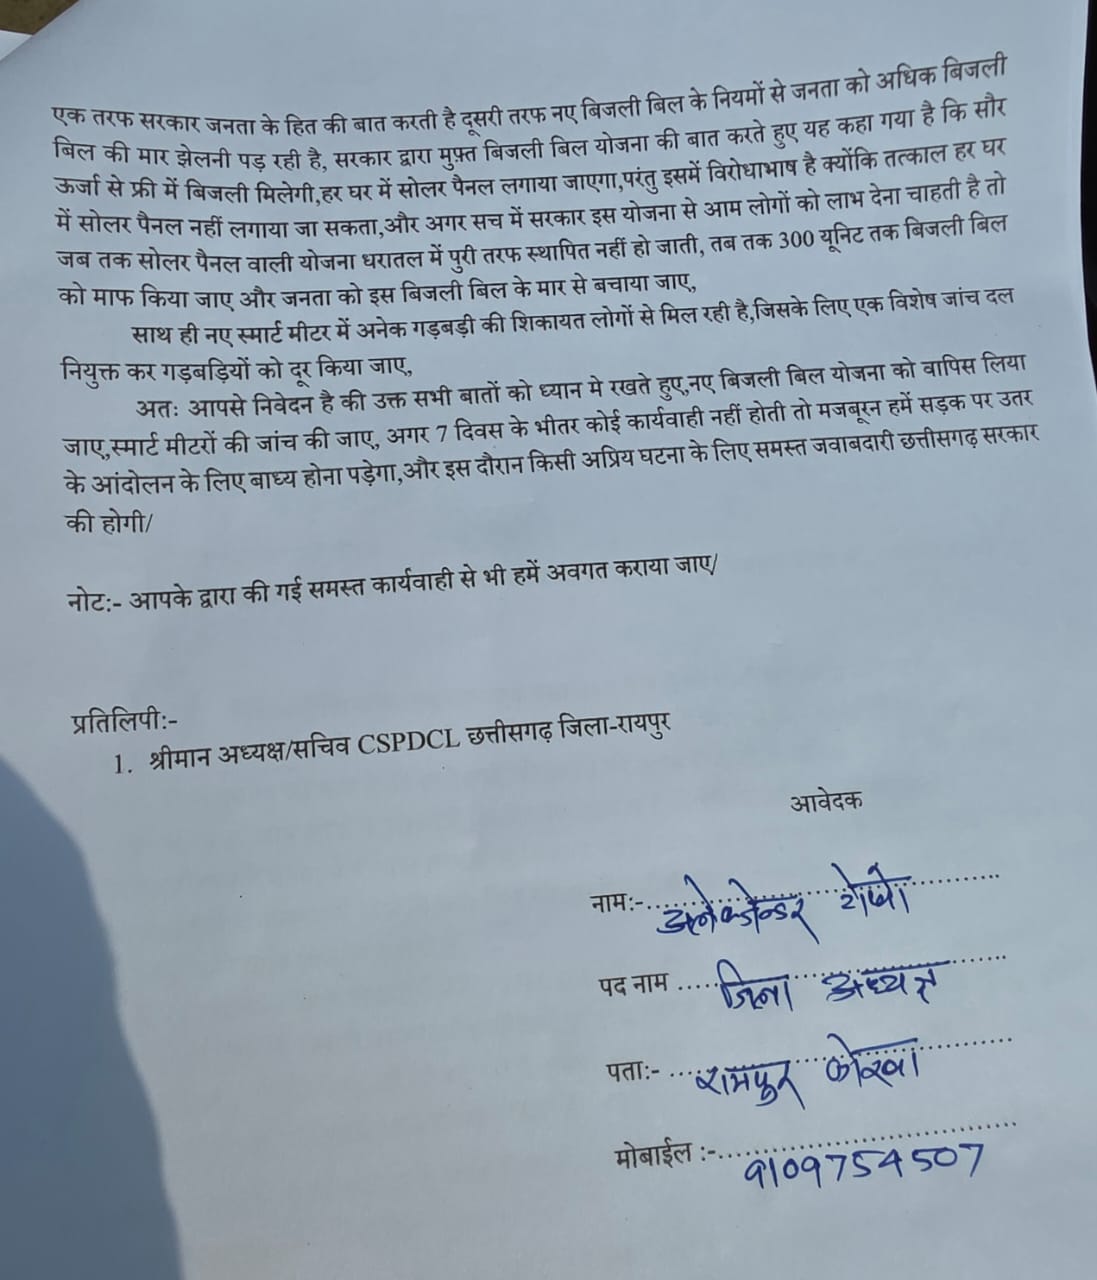 एक तरफ सरकार जनता के हित की बात करती है दूसरी तरफ नए बिजली बिल के नियमों से जनता को अधिक बिजली
बिल की मार झेलनी पड़ रही है, सरकार द्वारा मुफ़्त बिजली बिल योजना की बात करते हुए यह कहा गया है कि सौर
ऊर्जा से फ्री में बिजली मिलेगी,हर घर में सोलर पैनल लगाया जाएगा,परंतु इसमें विरोधाभाष है क्योंकि तत्काल हर घर
में सोलर पैनल नहीं लगाया जा सकता,और अगर सच में सरकार इस योजना से आम लोगों को लाभ देना चाहती है तो
जब तक सोलर पैनल वाली योजना धरातल में पुरी तरफ स्थापित नहीं हो जाती, तब तक 300 यूनिट तक बिजली बिल
को माफ किया जाए और जनता को इस बिजली बिल के मार से बचाया जाए,
साथ ही नए स्मार्ट मीटर में अनेक गड़बड़ी की शिकायत लोगों से मिल रही है,जिसके लिए एक विशेष जांच दल
नियुक्त कर गड़बड़ियों को दूर किया जाए,
अतः आपसे निवेदन है की उक्त सभी बातों को ध्यान मे रखते हुए,नए बिजली बिल योजना को वापिस लिया
जाए,स्मार्ट मीटरों की जांच की जाए, अगर 7 दिवस के भीतर कोई कार्यवाही नहीं होती तो मजबूरन हमें सड़क पर उतर
के आंदोलन के लिए बाध्य होना पड़ेगा,और इस दौरान किसी अप्रिय घटना के लिए समस्त जवाबदारी छत्तीसगढ़ सरकार
की होगी/
नोट:- आपके द्वारा की गई समस्त कार्यवाही से भी हमें अवगत कराया जाए/
प्रतिलिपी:-
1. श्रीमान अध्यक्ष/सचिव CSPDCL छत्तीसगढ़ जिला-रायपुर
आवेदक
नाम:- अलेक्जेन्डर टोप्पो
पद नाम जिला अध्यक्ष
पता:- रामपुर कोरबा
मोबाईल :- 9109754507